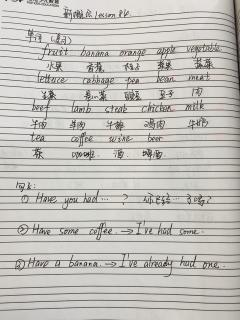 新概念 Lesson 84
单词 (复习)
fruit banana orange apple vegetable
水果 香蕉 橙子 苹果 蔬菜
lettuce cabbage pea bean meat
生菜 卷心菜 豌豆 豆子 肉
beef lamb steak chicken milk
牛肉 羊肉 牛排 鸡肉 牛奶
tea coffee wine beer
茶 咖啡 酒 啤酒
① Have you had … ? 你已经…了吗?
② Have some coffee. → I've had some.
③ Have a banana. → I've already had one.